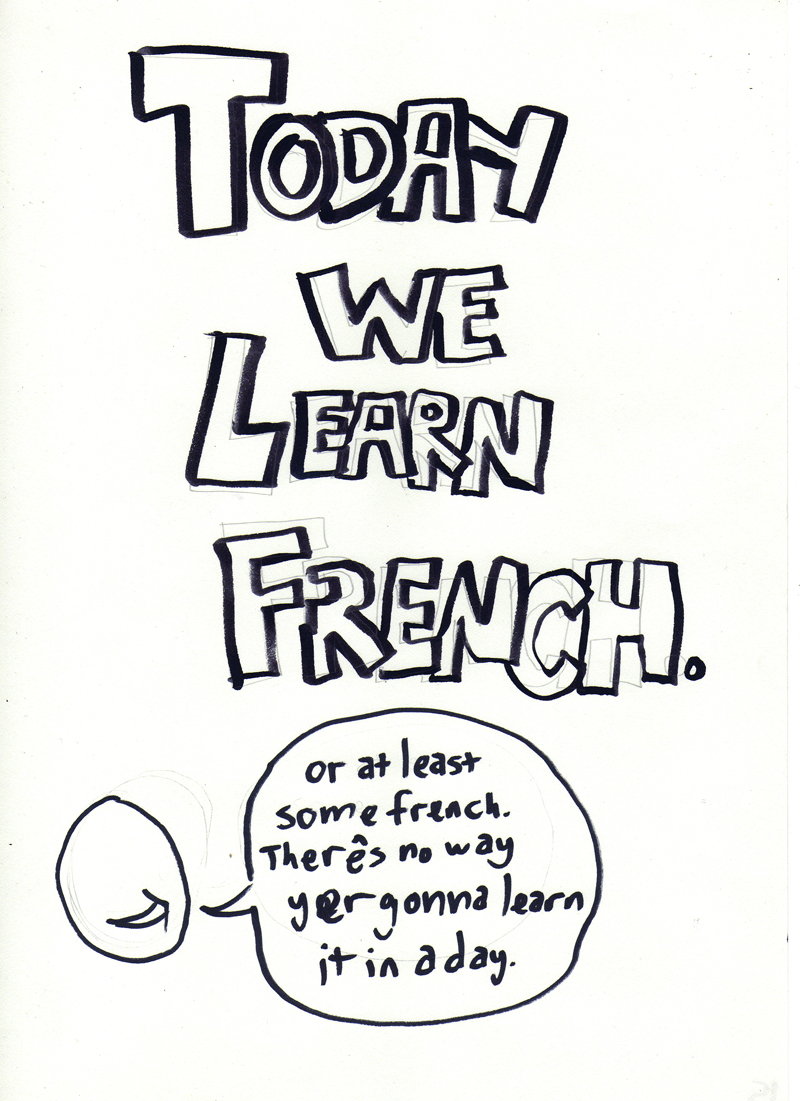 TODAY
WE
LEARN
FRENCH.
or at least
some french.
Therês no way
yer gonna learn
it in a day.